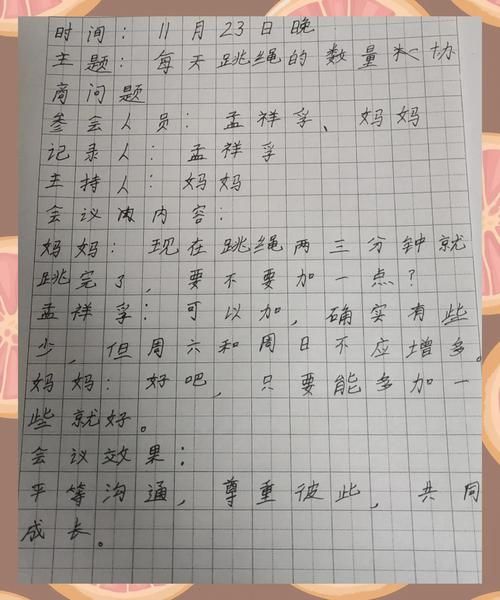 时间：11月23日晚
主题：每天跳绳的数量协
商问题
参会人员：孟祥孚、妈妈
记录人：孟祥孚
主持人：妈妈
会议内容：
妈妈：现在跳绳两三分钟就
跳完了，要不要加一点？
孟祥孚：可以加，确实有些
少，但周六和周日不应增多。
妈妈：好吧，只要能多加一
些就好。
会议效果：
平等沟通，尊重彼此，共同
成长。